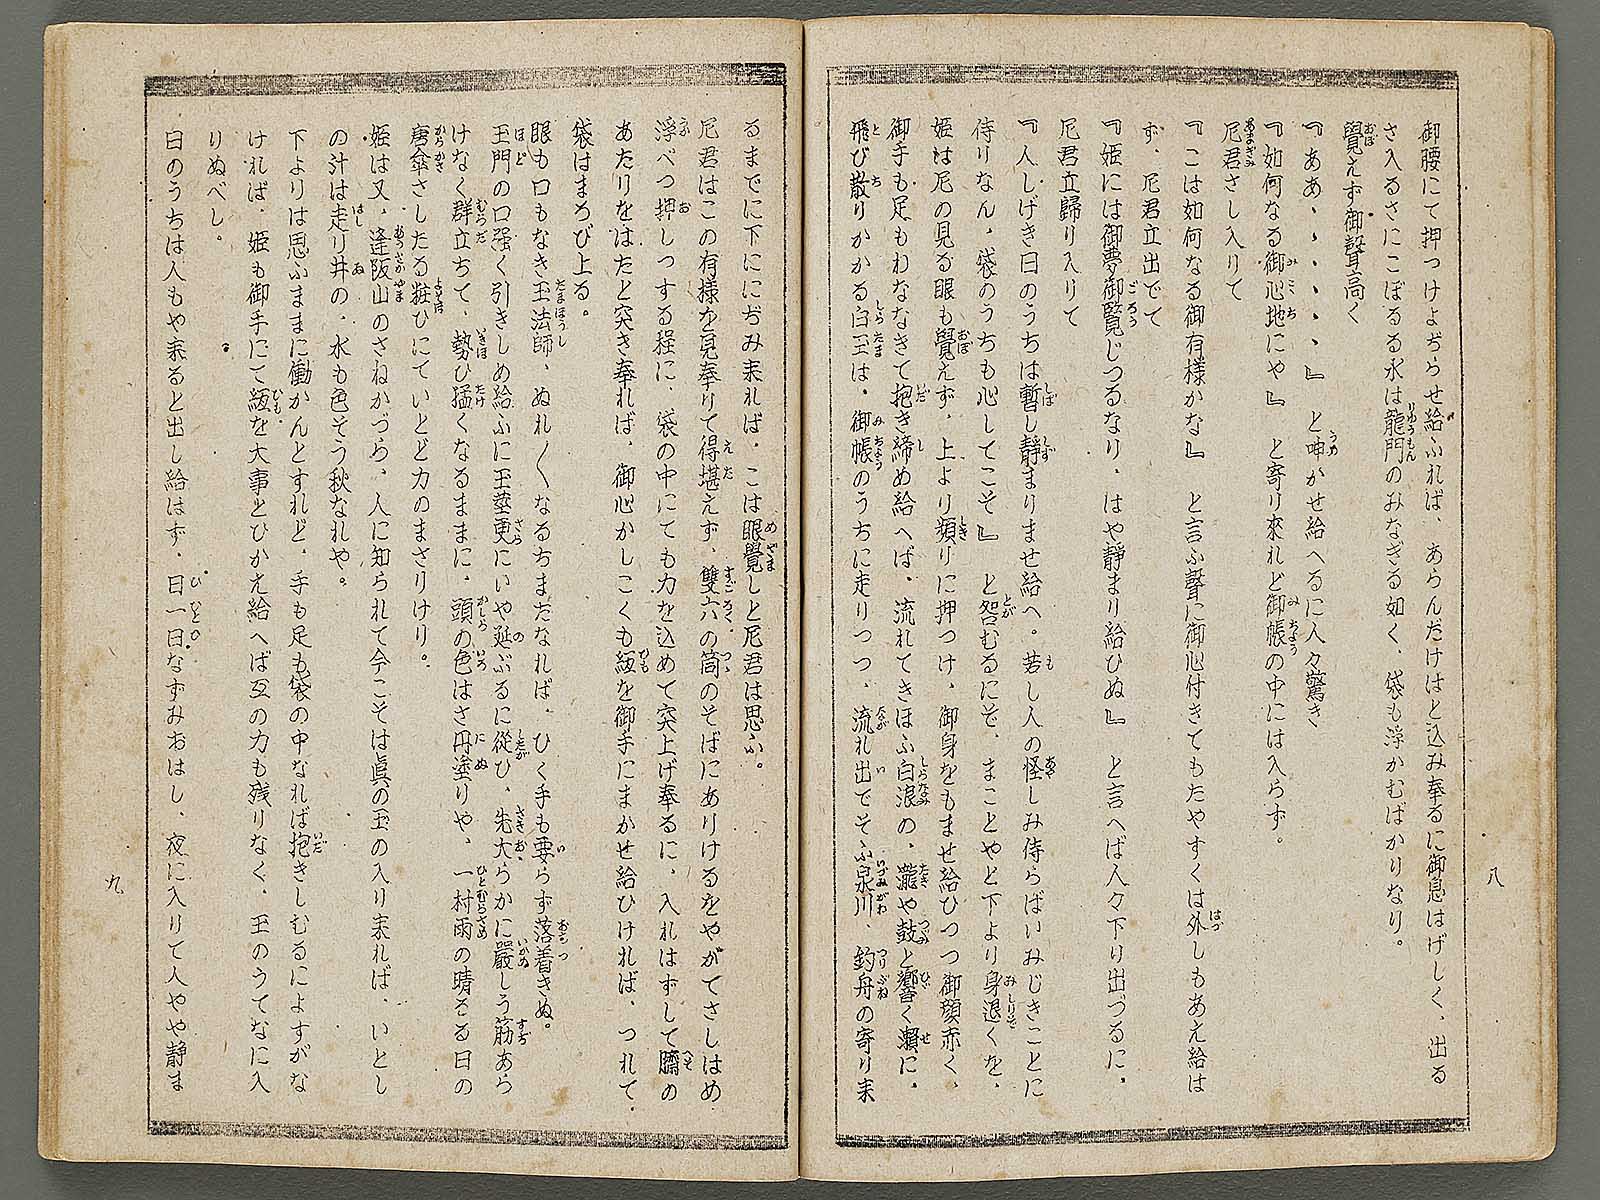 御腰にて押つけよぢらせ給ふれば、あらんだけはと込み奉るに御息はげしく、出る
さ入るさにこぼるる水は龍門のみなぎる如く、袋も浮かむばかりなり。
覺えず御聲高く
『ああ、、、、、』と呻かせ給へるに人々驚き
『如何なる御心地にや』と寄り來れど御帳の中には入らず。
尼君さし入りて
『こは如何なる御有様かな』と言ふ聲に御心付きてもたやすくは外しもあえ給は
ず、尼君立出でて
『姫には御夢御覧じつるなり、はや静まり給ひぬ』と言へば人々下り出づるに、
尼君立歸り入りて
『人しげき日のうちは暫し静まりませ給へ。若し人の怪しみ侍らばいみじきことに
侍りなん、袋のうちも心してこそ』と咎むるにぞ、まことやと下より身退くを、
姫は尼の見る眼も覺えず、上より頻りに押つけ、御身をもませ給ひつつ御顔赤く、
御手も足もわななきて抱き締め給へば、流れてきほふ白浪の、瀧や鼓と響く瀬に、
飛び散りかかる白玉は、御帳のうちに走りつつ、流れ出でそふ泉川、釣舟の寄り来
八
るまでに下ににぢみ来れば、こは眼覺しと尼君は思ふ。
尼君はこの有様を見奉りて得堪えず、雙六の筒のそばにありけるをやがてさしはめ
浮べつ押しつする程に、袋の中にても力を込めて突上げ奉るに、入れはずして臍の
あたりをはたと突き奉れば、御心かしこくも紐を御手にまかせ給ひければ、つれて、
袋はまろび上る。
眼も口もなき玉法師、ぬれ〱なるちまたなれば、ひく手も要らず落着きぬ。
玉門の口强く引きしめ給ふに玉莖更にいや延ぶるに従ひ、先大らかに嚴しう筋あら
けなく群立ちて、勢ひ猛くなるままに、頭の色はさ丹塗りや、一村雨の晴るる日の
唐傘さしたる粧ひにていとど力のまさりけり。
姫は又、逢阪山のさねかづら、人に知られて今こそは眞の玉の入り来れば、いとし
の汁は走り井の、水も色そう秋なれや。
下よりは思ふままに働かんとすれど、手も足も袋の中なれば抱きしむるによすがな
ければ、姫も御手にて紐を大事とひかえ給へば互の力も残りなく、玉のうてなに入
りぬべし。
日のうちは人もや来ると出し給はず、日一日なずみおはし、夜に入りて人やや静ま
九